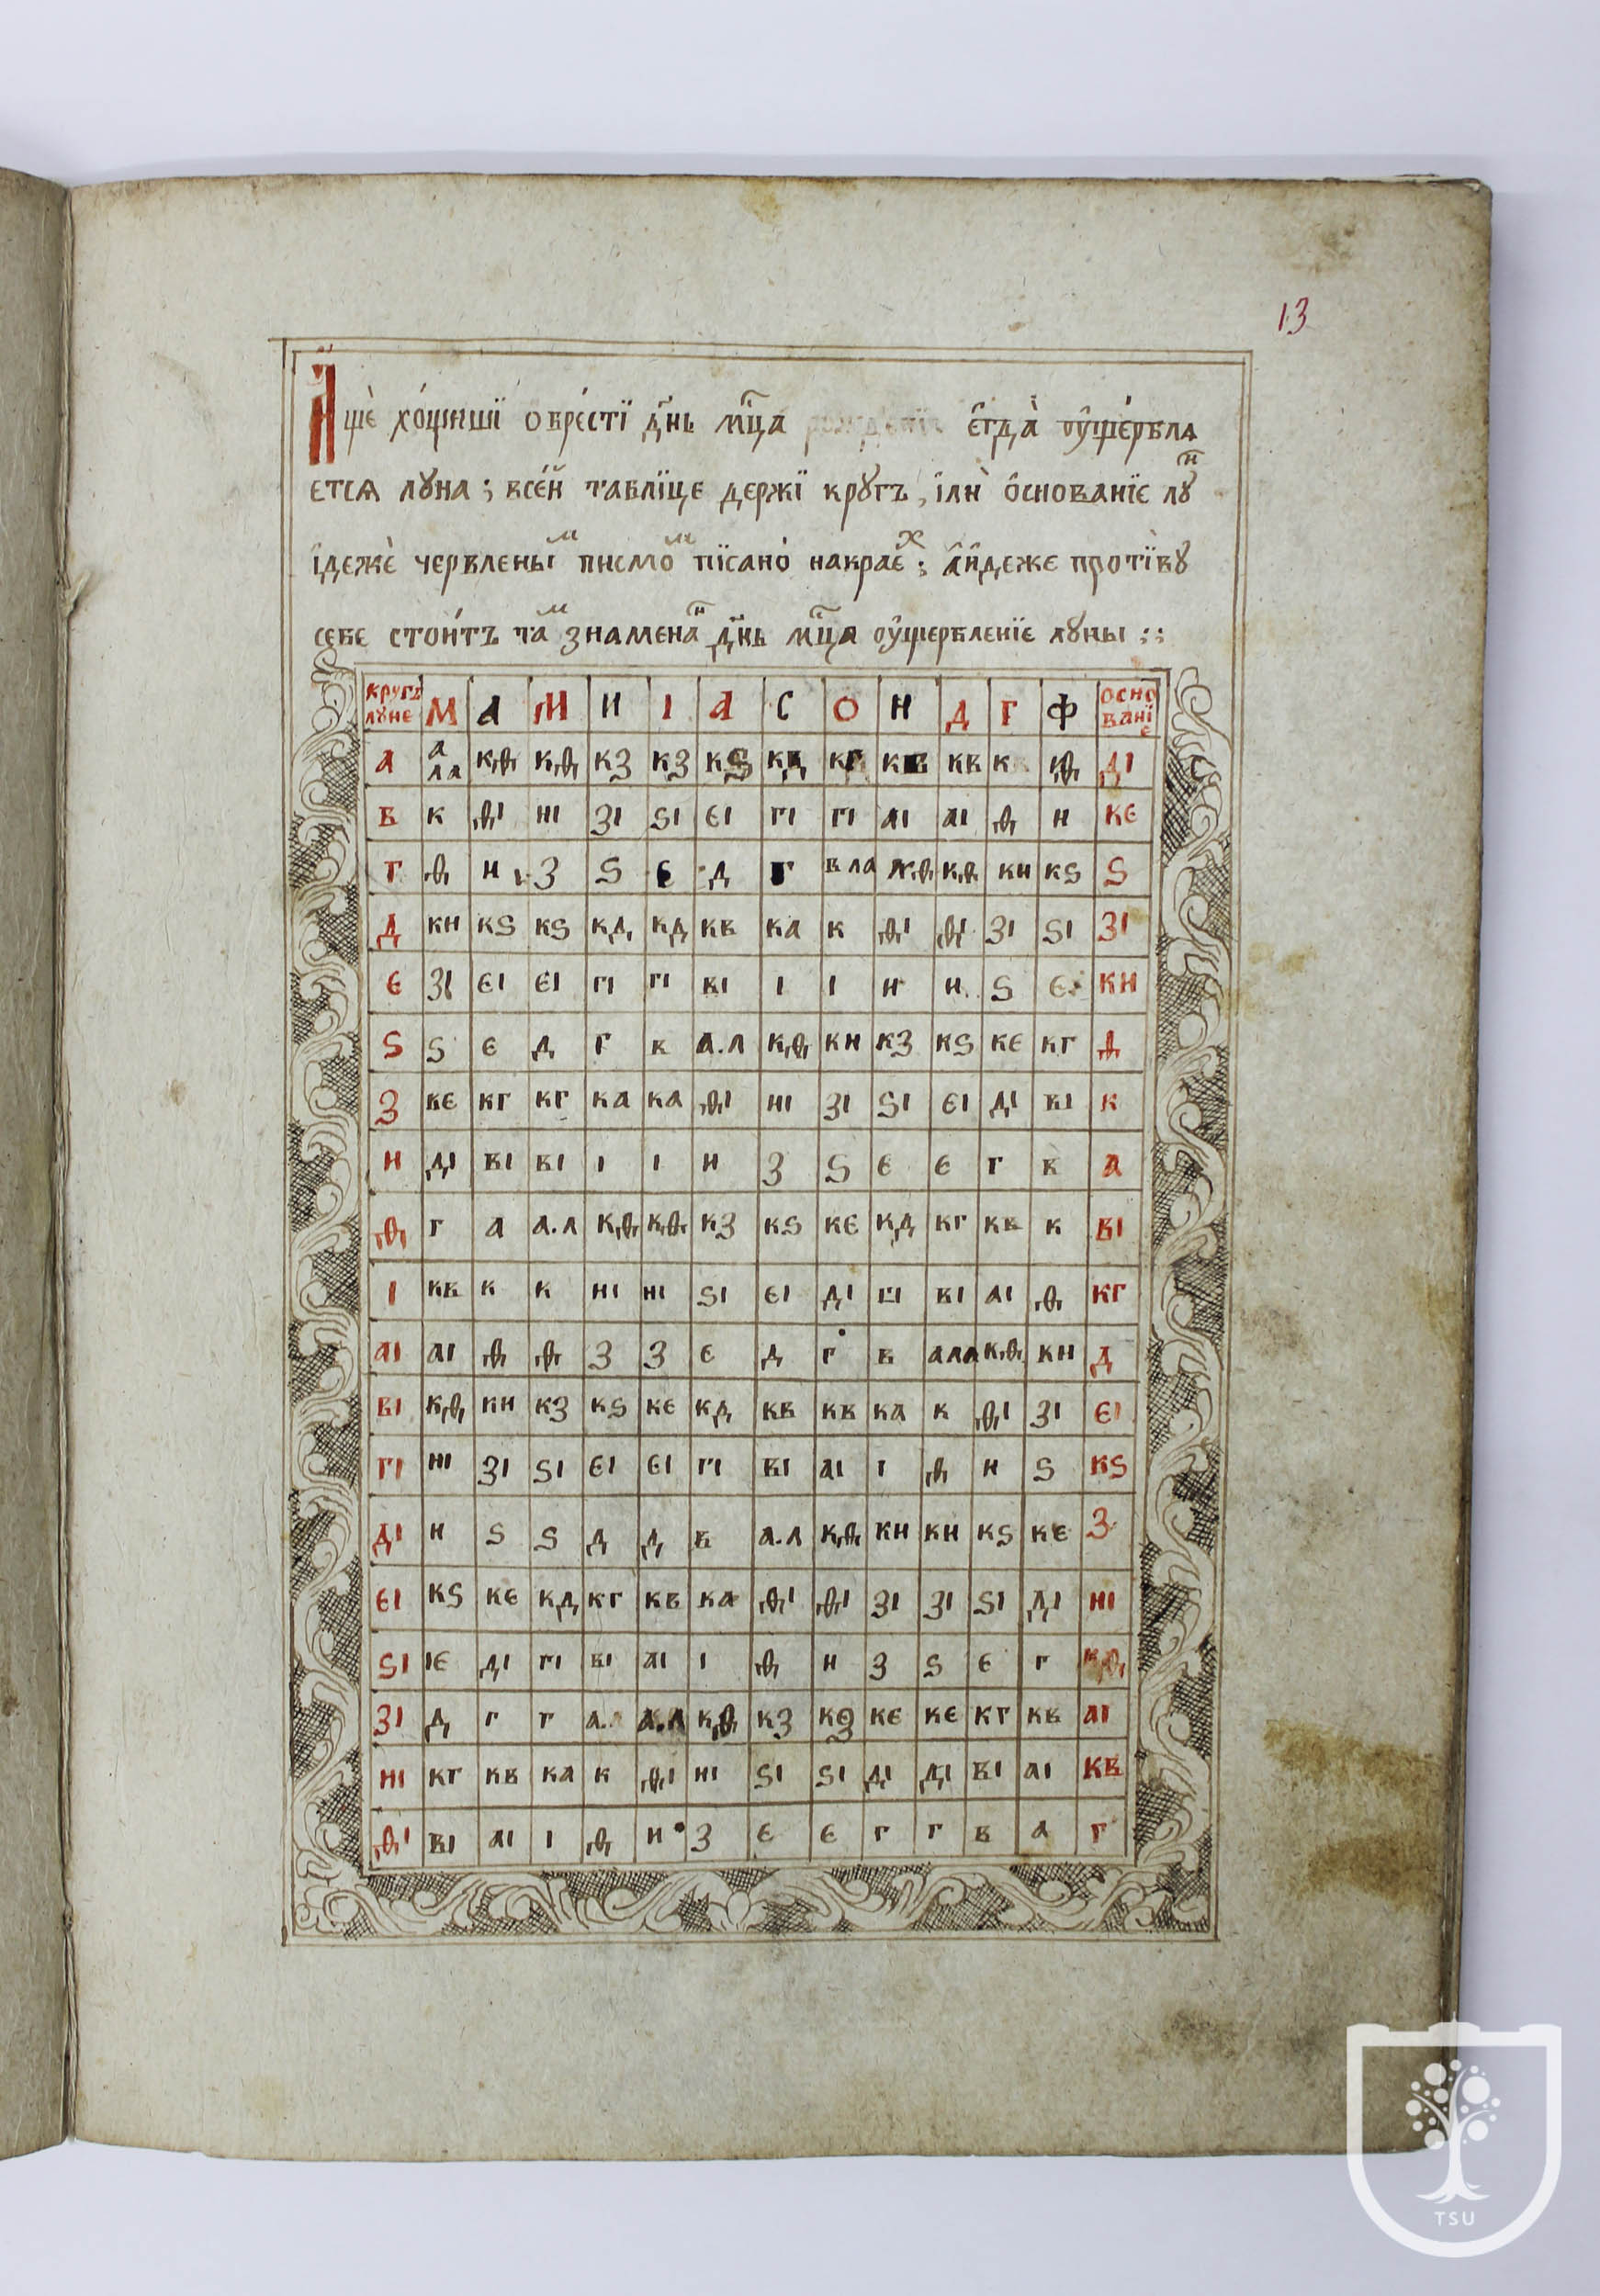 13
Аще хо́щиши ѡбре́сти дн҃ь мц҃а є̑гда̀ ᲂу҆ще́рблѧ
етсѧ лꙋна ; всеи таблїце держї крꙋгъ , їлѝ ѻ҆снованїе лꙋⷩ҇
їдежѐ червленыⷨ писмоⷨ пїсано̀ накраеⷯ ; а҆и҆деже протївꙋ
себе стои́тъ таⷨ знаменаⷩ҇ дн҃ь мц҃а ᲂу҆щербленїе лꙋны ::
крꙋгъ лꙋне М А М И І А С О Н Д Г Ф основанїе
а а ла кѳ кѳ кз кз кѕ кд кг кв кв к ѳ ді
в к ѳі ні зі ѕі єі гі гі аі аі ѳ н кє
г ѳ н з ѕ є д г в ла кѳ кѳ кн кѕ ѕ
д кн кѕ кѕ кд кд кв ка к ѳі ѳі зі ѕі зі
є зі єі єі гі гі ві і і н н ѕ є кн
ѕ ѕ є д г в а.л кѳ кн кз кѕ кє кг ѳ
з кє кг кг ка ка ѳі ні зі ѕі єі ді ві к
н ді ві ві і і н з ѕ є є г в а
ѳ г а а.л кѳ кѳ кз кѕ кє кд кг кв к ві
і кв к к ні ні ѕі єі ді гі ві аі ѳ кг
аі аі ѳ ѳ з з є д г в а ла кѳ кн д
ві кѳ кн кз кѕ кє кд кв кв ка к ѳі зі єі
гі ні зі ѕі єі єі гі ві аі і ѳ н ѕ кѕ
ді н ѕ ѕ д д в а.л кѳ кн кн кѕ кє з
єі кѕ кє кд кг кв ка ѳі ѳі зі зі ѕі ді ні
ѕі іє ді гі ві аі і ѳ н з ѕ є г кѳ
зі д г г а.л а.л кѳ кз кз кє кє кг кв аі
ні кг кв ка к ѳі ні ѕі ѕі ді ді ві аі кв
ѳі ві аі і ѳ н з є є г г в а г
TSU